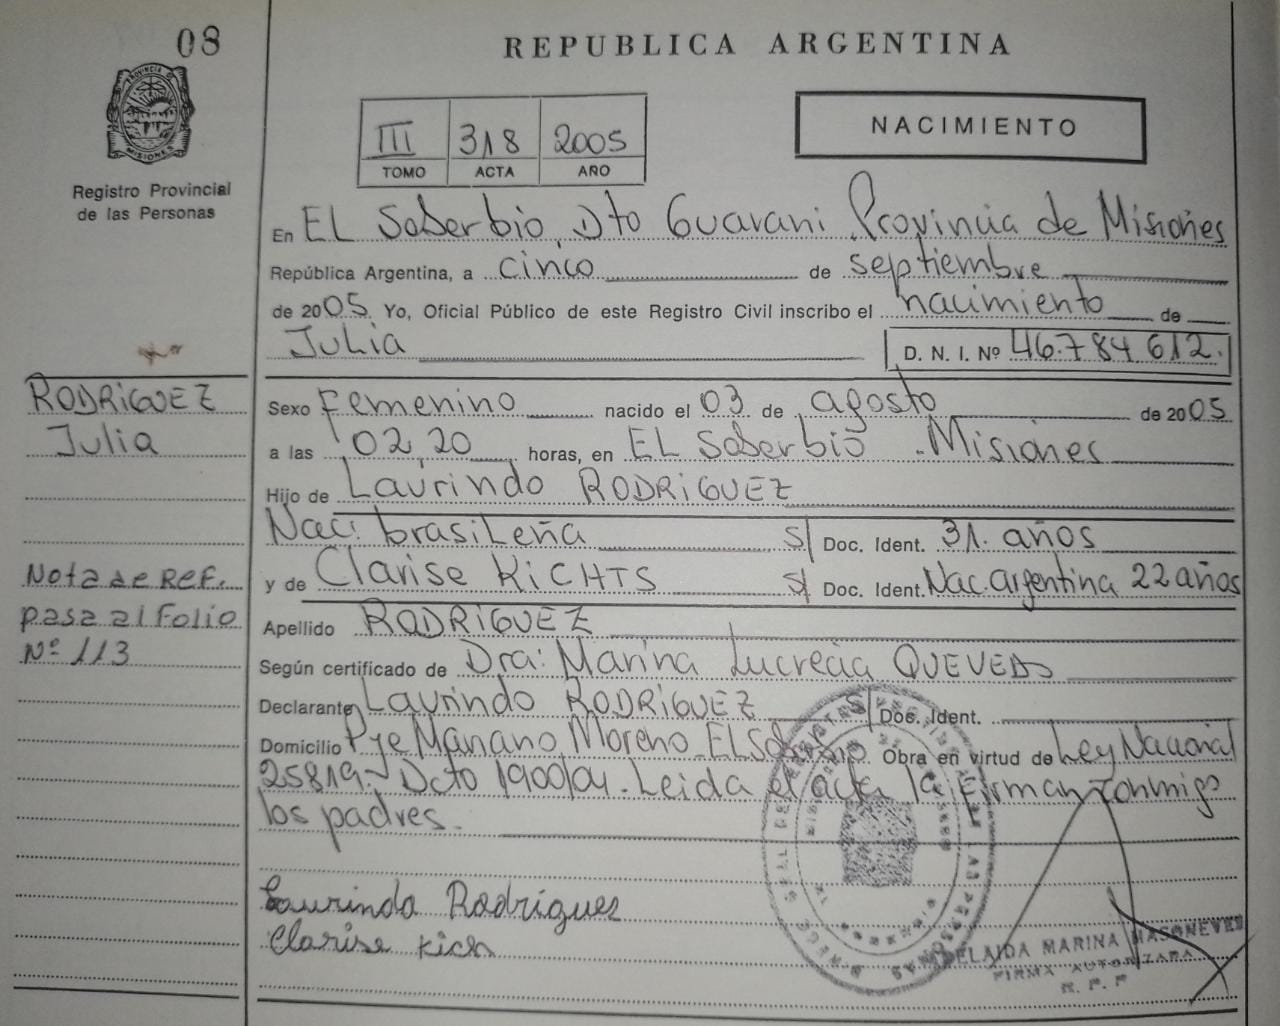 08
REPUBLICA ARGENTINA
PROVINCIA D
MISIONES
Registro Provincial
de las Personas
III 318 2005
TOMO ACTA AÑO
NACIMIENTO
En EL Soberbio, Dto Guarani Provincia de Misiones
República Argentina, a cinco de septiembre
de 2005. Yo, Oficial Público de este Registro Civil inscribo el nacimiento de
Julia D. N. I. Nº 46.784 612.
RODRIGUEZ
Julia
Sexo Femenino nacido el 03 de agosto de 2005
a las 02,20 horas, en EL Soberbio - Misiones
Hijo de Laurindo RODRIGUEZ
Nac: brasileña S/ Doc. Ident. 31. años
y de Clarise KICHTS S/ Doc. Ident. Nac. argentina 22 años
Nota de Ref.
pasa al Folio
Nº 113
Apellido RODRIGUEZ
Según certificado de Dra: Marina Lucrecia QUEVEDO
Declarante Laurindo RODRIGUEZ S/ Doc. Ident.
Domicilio Pje Mariano Moreno El Soberbio. Obra en virtud de Ley Nacional
25819- Dcto 1900/04. Leida el acta la firman conmigo
los padres.
Laurindo Rodrigues
Clarise Kich
ADELAIDA MARINA MASONEVES
FIRMA AUTORIZADA
R. P. P